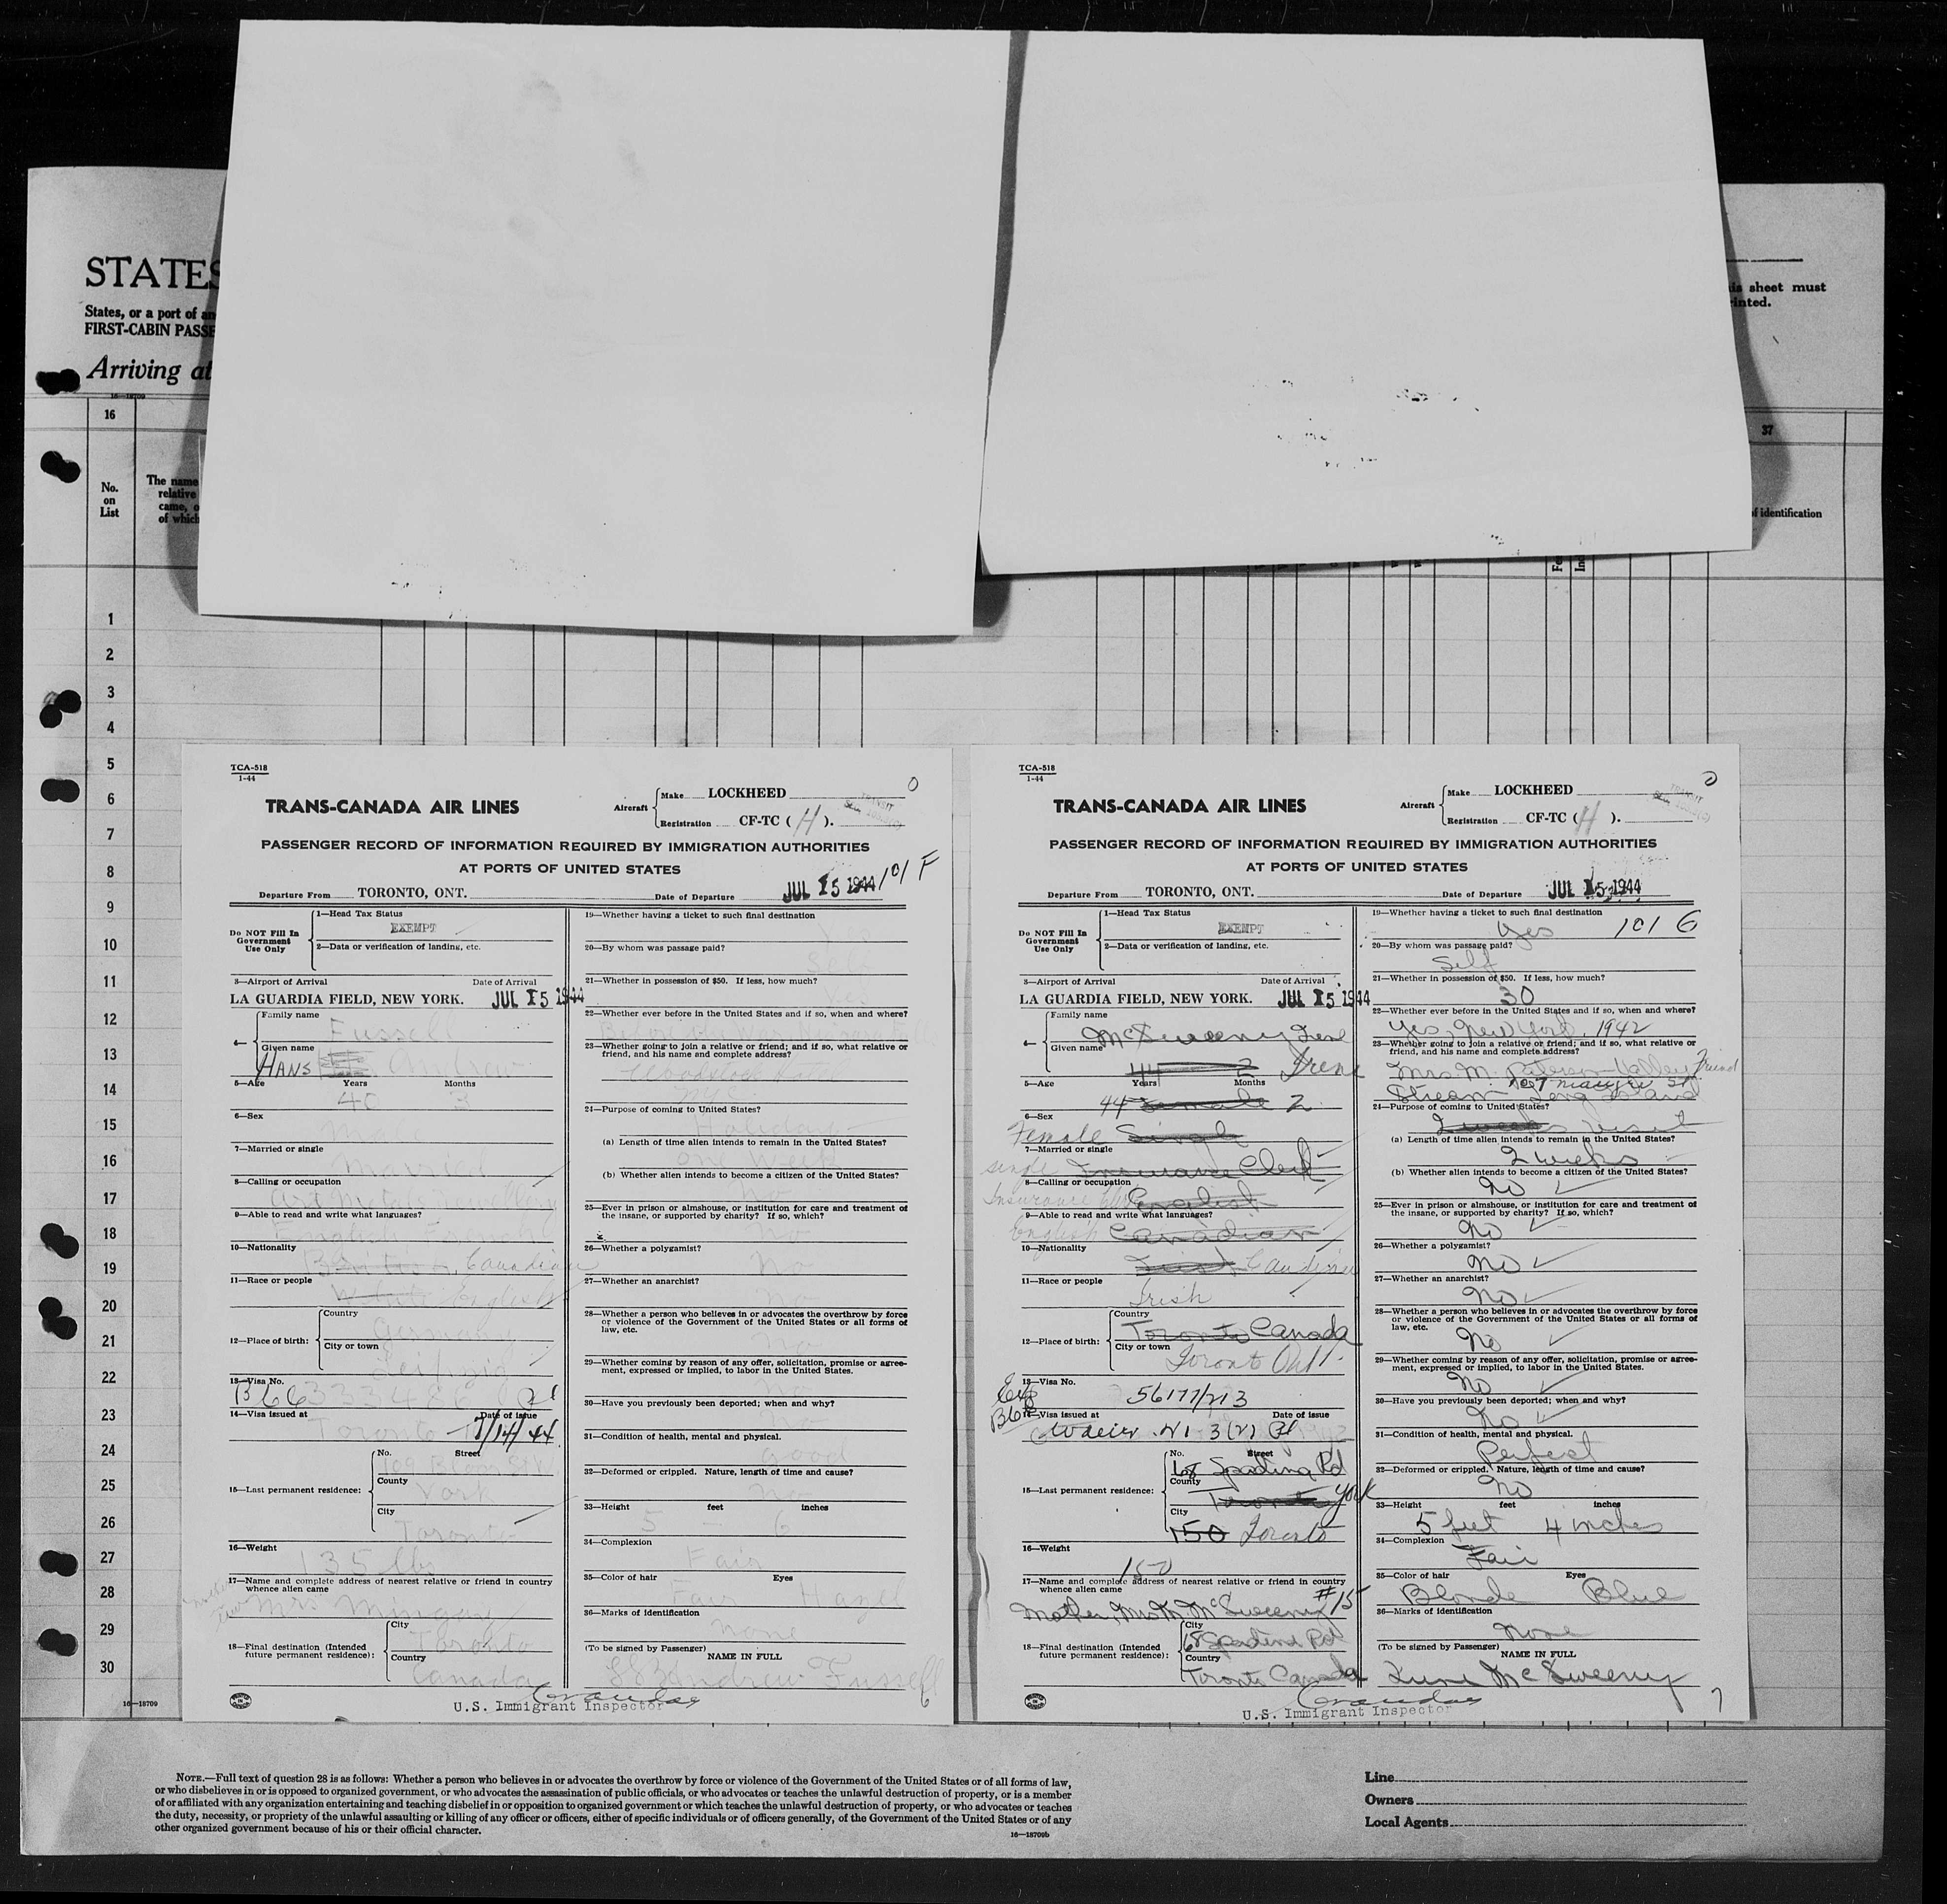 STATES
States, or a port of an
FIRST-CABIN PASSE
Arriving at
is sheet must
rinted.
16—18709
16
37
No.
on
List
The name
relative
came, o
of which
of identification
Fe
Ind
1
2
3
4
5
6
7
8
9
10
11
12
13
14
15
16
17
18
19
20
21
22
23
24
25
26
27
28
29
30
16—18709
TCA-518
1-44
TRANS-CANADA AIR LINES
Aircraft
Make LOCKHEED
Registration CF-TC ( H ).
0
PASSENGER RECORD OF INFORMATION REQUIRED BY IMMIGRATION AUTHORITIES
AT PORTS OF UNITED STATES
101 F
Departure From TORONTO, ONT. Date of Departure JUL 15 1944
Do NOT Fill In
Government
Use Only
1—Head Tax Status
EXEMPT
2—Data or verification of landing, etc.
3—Airport of Arrival Date of Arrival
LA GUARDIA FIELD, NEW YORK. JUL 15 1944
4—
Family name
Fussell
Given name
HANS Andrew
5—Age Years Months
40 3
6—Sex
Male
7—Married or single
Married
8—Calling or occupation
9—Able to read and write what languages?
English
10—Nationality
British, Canadian
11—Race or people
White English
12—Place of birth:
Country
Germany
City or town
Leipzig
13—Visa No.
B66
14—Visa issued at Date of issue
Toronto 7/14/44
15—Last permanent residence:
No. Street
109 Bloor St W
County
York
City
Toronto
16—Weight
135 lbs
17—Name and complete address of nearest relative or friend in country
whence alien came
Mrs
18—Final destination (Intended
future permanent residence):
City
Toronto
Country
Canada
U.S. Immigrant Inspector
19—Whether having a ticket to such final destination
20—By whom was passage paid?
Self
21—Whether in possession of $50. If less, how much?
Yes
22—Whether ever before in the United States and if so, when and where?
23—Whether going to join a relative or friend; and if so, what relative or
friend, and his name and complete address?
24—Purpose of coming to United States?
Holiday
(a) Length of time alien intends to remain in the United States?
One week
(b) Whether alien intends to become a citizen of the United States?
No
25—Ever in prison or almshouse, or institution for care and treatment of
the insane, or supported by charity? If so, which?
No
26—Whether a polygamist?
No
27—Whether an anarchist?
No
28—Whether a person who believes in or advocates the overthrow by force
or violence of the Government of the United States or all forms of
law, etc.
No
29—Whether coming by reason of any offer, solicitation, promise or agree-
ment, expressed or implied, to labor in the United States.
No
30—Have you previously been deported; when and why?
No
31—Condition of health, mental and physical.
Good
32—Deformed or crippled. Nature, length of time and cause?
No
33—Height feet inches
5 — 6
34—Complexion
Fair
35—Color of hair Eyes
Fair Hazel
36—Marks of identification
None
(To be signed by Passenger) NAME IN FULL
Andrew Fussell
6
TCA-518
1-44
TRANS-CANADA AIR LINES
Aircraft
Make LOCKHEED
Registration CF-TC ( H ).
PASSENGER RECORD OF INFORMATION REQUIRED BY IMMIGRATION AUTHORITIES
AT PORTS OF UNITED STATES
Departure From TORONTO, ONT. Date of Departure JUL 15 1944
Do NOT Fill In
Government
Use Only
1—Head Tax Status
EXEMPT
2—Data or verification of landing, etc.
3—Airport of Arrival Date of Arrival
LA GUARDIA FIELD, NEW YORK. JUL 15 1944
4—
Family name
McSweeny
Given name
44 2 Irene
5—Age Years Months
44 Female 2
6—Sex
Female Single
7—Married or single
single Insurance Clerk
8—Calling or occupation
Insurance Clerk English
9—Able to read and write what languages?
English Canadian
10—Nationality
Irish Canadian
11—Race or people
Irish
12—Place of birth:
Country
Toronto Canada
City or town
Toronto Ont.
13—Visa No.
56177/213
14—Visa issued at Date of issue
15—Last permanent residence:
No. Street
68 Spadina Rd
County
Toronto York
City
150 Toronto
16—Weight
150
17—Name and complete address of nearest relative or friend in country
whence alien came
#15
Mother, Mrs M. McSweeny
18—Final destination (Intended
future permanent residence):
City
68 Spadina Rd
Country
Toronto Canada
U.S. Immigrant Inspector
19—Whether having a ticket to such final destination
Yes 101 G
20—By whom was passage paid?
Self
21—Whether in possession of $50. If less, how much?
30
22—Whether ever before in the United States and if so, when and where?
Yes, New York, 1942
23—Whether going to join a relative or friend; and if so, what relative or
friend, and his name and complete address?
Mrs M. Valley Friend
Stream Long Island
24—Purpose of coming to United States?
2 weeks visit
(a) Length of time alien intends to remain in the United States?
2 weeks
(b) Whether alien intends to become a citizen of the United States?
No
25—Ever in prison or almshouse, or institution for care and treatment of
the insane, or supported by charity? If so, which?
No
26—Whether a polygamist?
No
27—Whether an anarchist?
No
28—Whether a person who believes in or advocates the overthrow by force
or violence of the Government of the United States or all forms of
law, etc.
No
29—Whether coming by reason of any offer, solicitation, promise or agree-
ment, expressed or implied, to labor in the United States.
No
30—Have you previously been deported; when and why?
No
31—Condition of health, mental and physical.
Perfect
32—Deformed or crippled. Nature, length of time and cause?
No
33—Height feet inches
5 feet 4 inches
34—Complexion
Fair
35—Color of hair Eyes
Blonde Blue
36—Marks of identification
None
(To be signed by Passenger) NAME IN FULL
Irene McSweeny
7
NOTE.—Full text of question 28 is as follows: Whether a person who believes in or advocates the overthrow by force or violence of the Government of the United States or of all forms of law,
or who disbelieves in or is opposed to organized government, or who advocates the assassination of public officials, or who advocates or teaches the unlawful destruction of property, or is a member
of or affiliated with any organization entertaining and teaching disbelief in or opposition to organized government or which teaches the unlawful destruction of property, or who advocates or teaches
the duty, necessity, or propriety of the unlawful assaulting or killing of any officer or officers, either of specific individuals or of officers generally, of the Government of the United States or of any
other organized government because of his or their official character.
16—18709b
Line
Owners
Local Agents